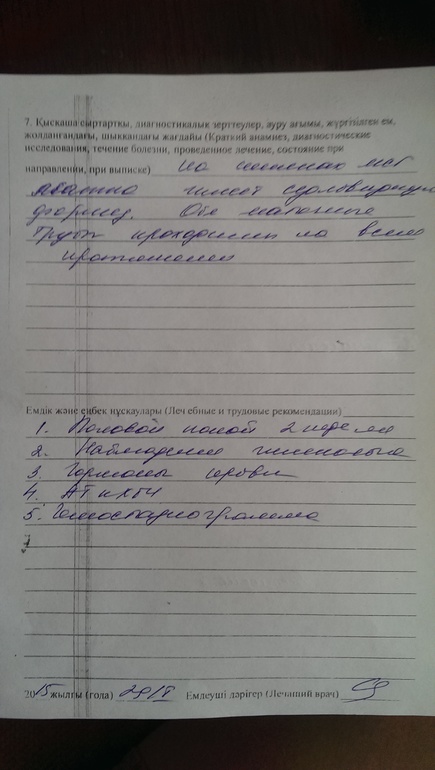 7. Қысқаша сыртартқы, диагностикалық зерттеулер, ауру ағымы, жүргізілген ем,
жолданғандағы, шыққандағы жағдайы (Краткий анамнез, диагностические
исследования, течение болезни, проведенное лечение, состояние при
направлении, при выписке) На снимках
имеет седловидную
форму. Обе маточные
трубы проходимы на всем
протяжении
Емдік және еңбек нұсқаулары (Лечебные и трудовые рекомендации)
1. Половой покой 2 недели
2. Наблюдение гинеколога
3. Гормоны крови
4. АТ к ХГЧ
5. Гемостазиограмма
2015 жылғы (года) 29/I Емдеуші дәрігер (Лечащий врач)